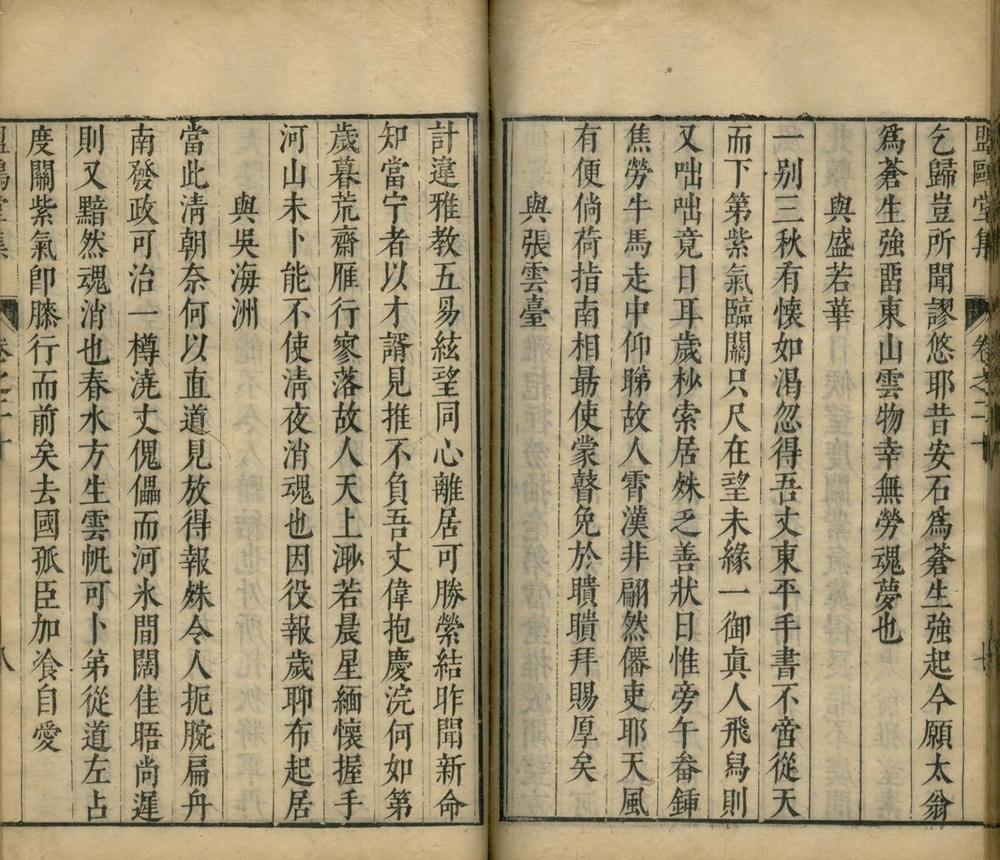 盟鷗堂集 卷之二十 七
乞歸豈所聞謬悠耶昔安石爲蒼生強起今願太翁
爲蒼生強畱東山雲物幸無勞魂夢也
與盛若華
一别三秋有懷如渴忽得吾丈東平手書不啻從天
而下第紫氣臨關只尺在望未緣一御眞人飛舄則
又咄咄竟日耳歲杪索居殊乏善狀日惟旁午畚鍤
焦勞牛馬走中仰睇故人霄漢非翩然僊吏耶天風
有便倘荷指南相勗使蒙瞽免於聵聵拜賜厚矣
與張雲臺
計違雅教五易絃望同心離居可勝縈結昨聞新命
知當宁者以才諝見推不負吾丈偉抱慶浣何如第
歲暮荒齋雁行寥落故人天上渺若晨星緬懷握手
河山未卜能不使清夜消魂也因役報歲聊布起居
與吳海洲
當此清朝奈何以直道見放得報殊令人扼腕扁舟
南發政可治一樽澆丈傀儡而河氷間闊佳晤尚遲
則又黯然魂消也春水方生雲帆可卜第從道左占
度關紫氣卽膝行而前矣去國孤臣加飡自愛
盟鷗堂集 卷之二十 八